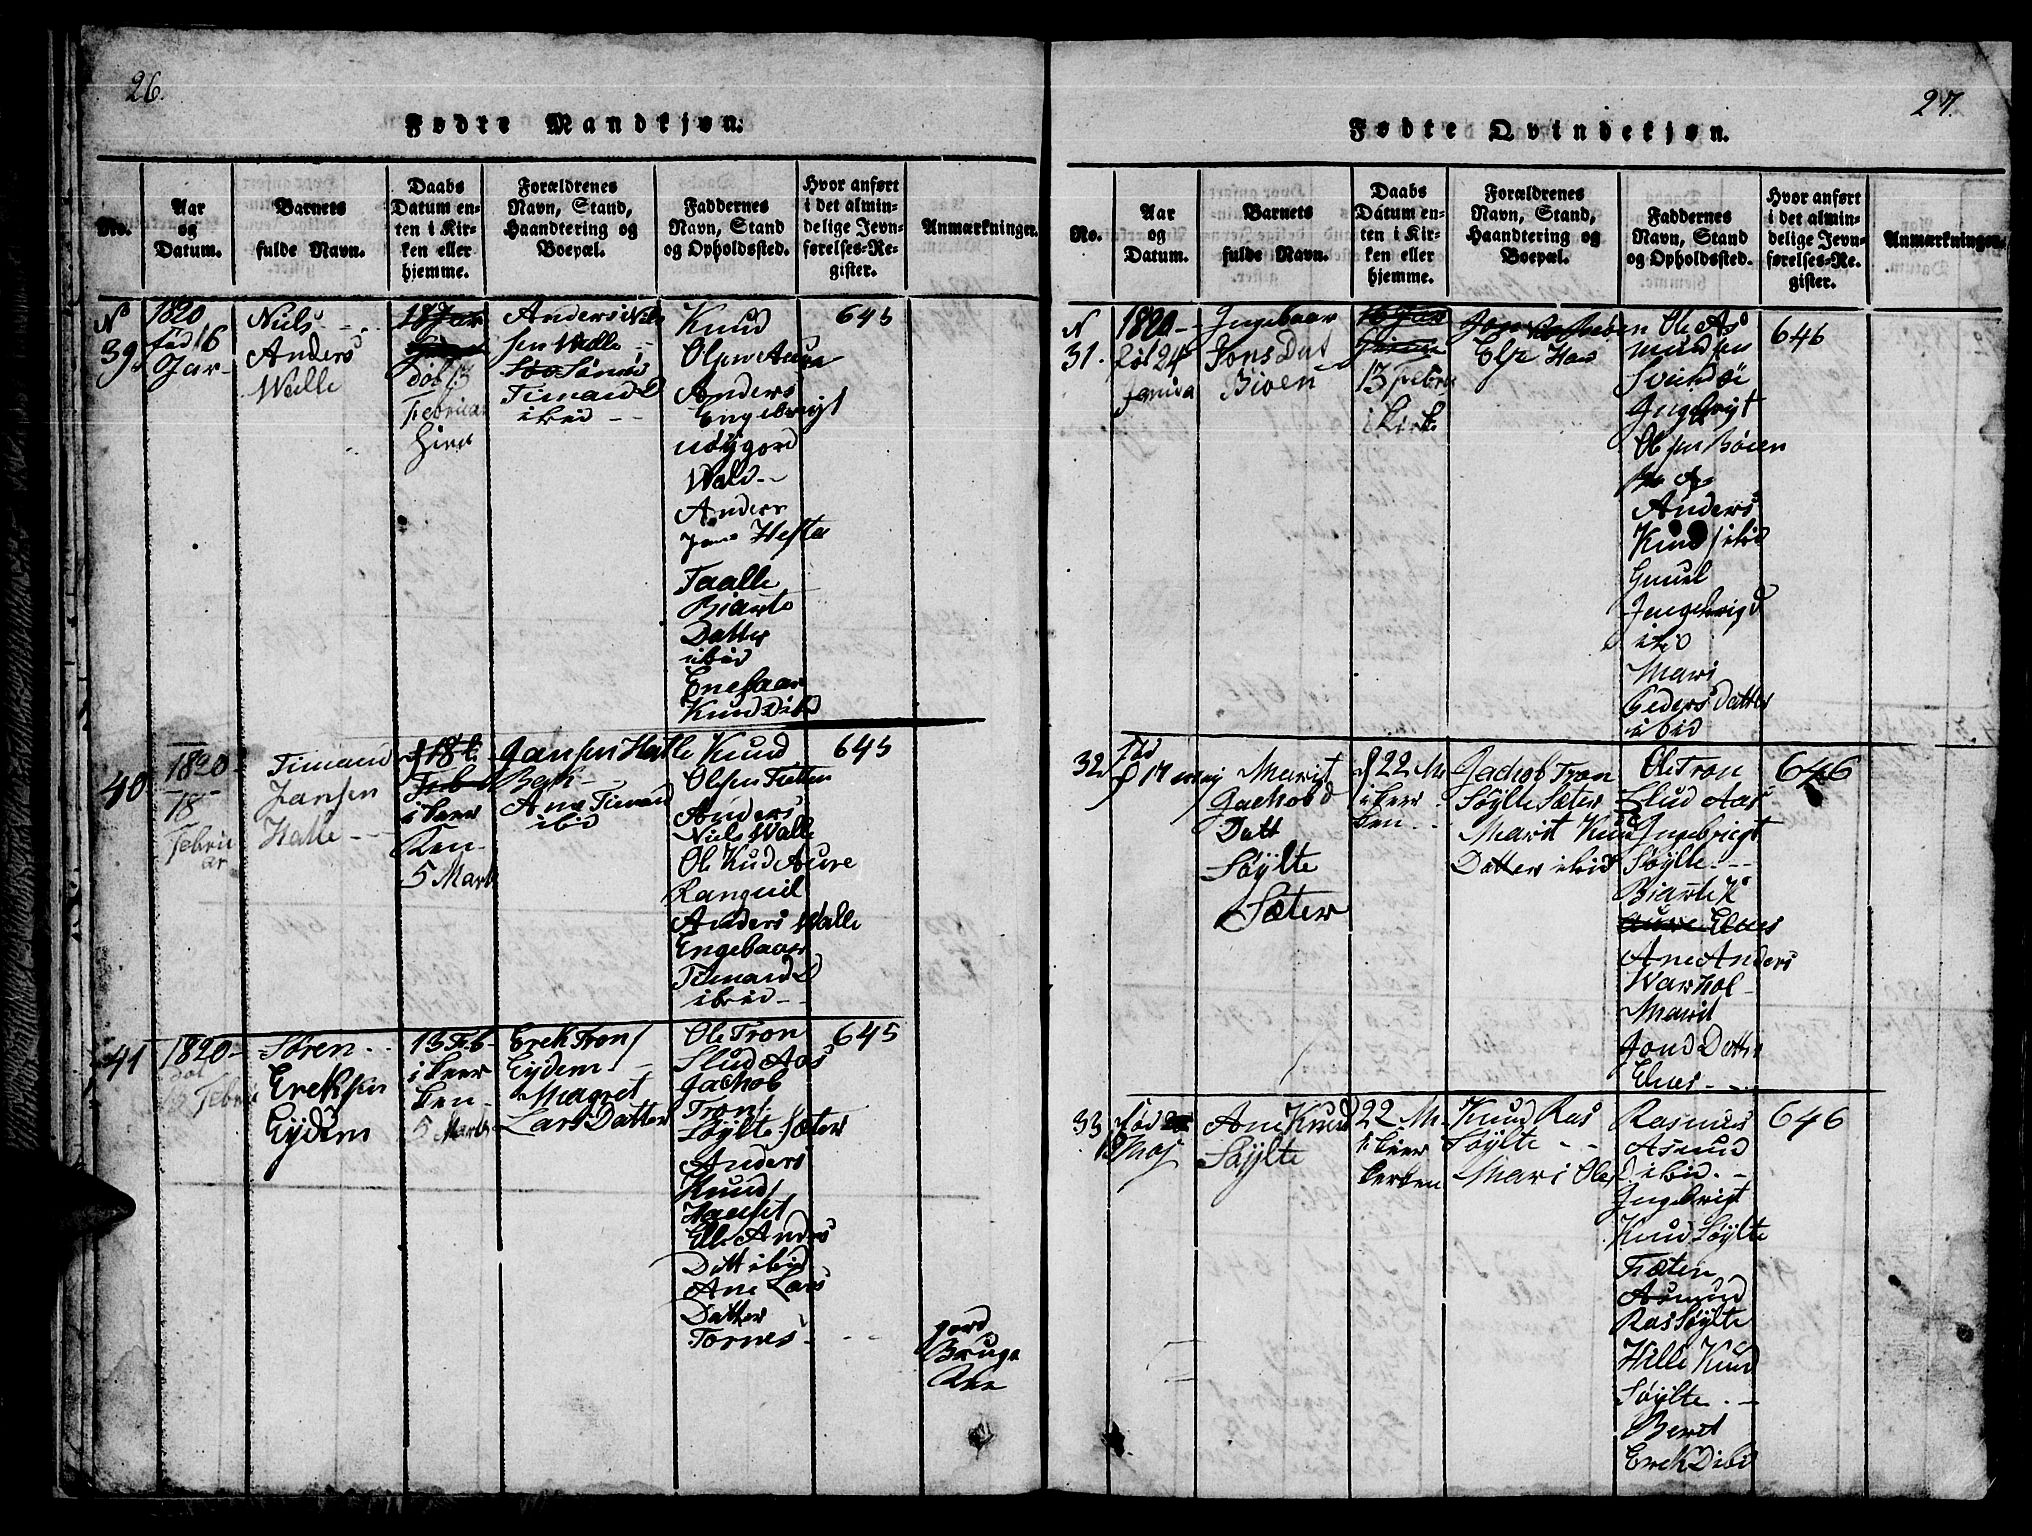 26.
Fødte Mandkjøn.
No.
Aar
og
Datum.
Barnets
fulde Navn.
Daabs
Datum en-
ten i Kir-
ken eller
hjemme.
Forældrenes
Navn, Stand,
Haandtering og
Boepæl.
Faddernes
Navn, Stand
og Opholdssted.
Hvor anført
i det almin-
delige Jevn-
førelses-Re-
gister.
Anmærkninger.
N
39
1820
Fød 16
Jar-
Niels
Anders
Walle
17 Jar
døb 13
Februar
Anders Niels
sen Walle
Timand D
ibid
Knud
Olsen Aure
Anders
Engebrigt
nøÿgord
Wald
Anders
Hesta
Taalle
Biarte
Datter
ibid
Knud D ibd
645
40
1820
18
Febru
ar
Timand
Jansen
Halle
18
Feb
i keer
Ken
5 Marts
Jansen Halle
Ane Timand
ibid
Knud
Olsen Fætten
Anders
Niels Walle
Ole Knud Aure
Ranguil
Anders Walle
Engebaar
Timand D
ibid
645
41
1820
Søren
Ereksen
Eÿdem
13 Feb
i keer
ken
5 Marts
Erek Trons
Eÿdem
Magret
Lars Datter
Ole Tron
Slud Aas
Jachob
Trons
Søÿlte Sæter
Anders
Knuds
Anders
Datt ibid
Ane Lars
Datter
Tornes
645
gord
Bruge
27.
Fødte Qvindekjøn.
No.
Aar
og
Datum.
Barnets
fulde Navn.
Daabs
Datum en-
ten i Kir-
ken eller
hjemme.
Forældrenes
Navn, Stand,
Haandtering og
Boepæl.
Faddernes
Navn, Stand
og Opholdssted.
Hvor anført
i det almin-
delige Jevn-
førelses-Re-
gister.
Anmærkninger.
N
31.
1820
24
Janua
Ingebaar
Jons Dat
Bøen
13 Febru
i Kirk
Elje Has
Ole As
mundsen
Svindsøi
Ingebrigt
Olsen Bøien
Anders
Knuds ibid
Guuel
Jengebrigd
ibid
Mari
Peders Datter
ibid
646
32
Fød
d 17 maj
Marigt
Jachob D
Datt
Søÿlte
Sæter
d 22 M
i keer
ken
Jachob Tron
Søÿlte Sæter
Marit Knud
Datter ibid
Ole Tron
Slud Aas
Ingebrigt
Søÿlte
Biarte K
Aure Elnes
Ane Anders
Warhol
Marit
Jond Datter
Elnes
646
33
Fød
Maj
Ane Knud
Søÿlte
22 M
i keer
kerken
Knud Ras
Søÿlte
Mari Oles
Rasmus
Asmud
D ibid
Ingebrigt
Knud Søÿlte
Fræten
Asmud
Ras Søÿlte
Hille Knud
Søÿlte
Beret
Erek D ibd
646